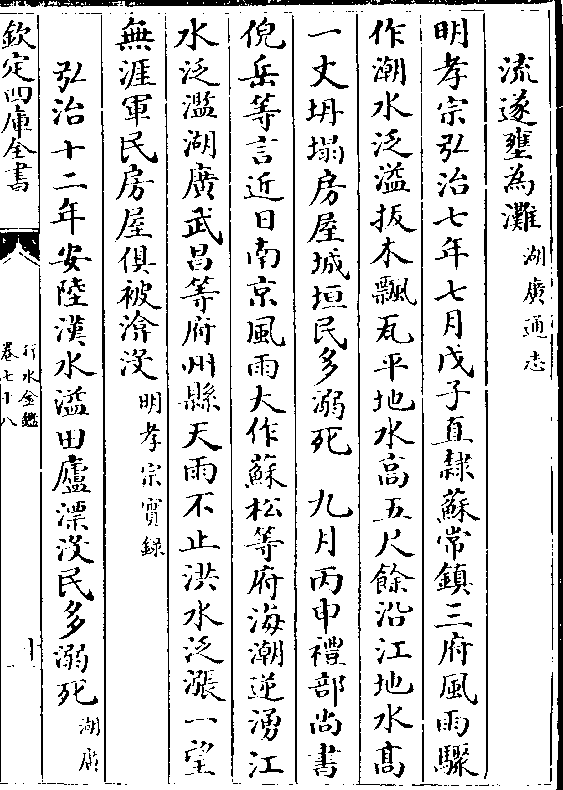 流遂壅為灘湖廣通志
明孝宗弘治七年七月戊子直隸蘇常鎮三府風雨驟
作潮水泛溢拔木飄瓦平地水高五尺餘沿江地水髙
一丈坍塌房屋城垣民多溺死 九月丙申禮部尚書
倪岳等言近日南京風雨大作蘇松等府海潮逆湧江
水泛濫湖廣武昌等府州縣天雨不止洪水泛漲一望
無涯軍民房屋俱被渰没明孝宗實録
弘治十二年安陸漢水溢田廬漂没民多溺死湖廣
欽定四庫全書
行水金鑑
卷七十八
十